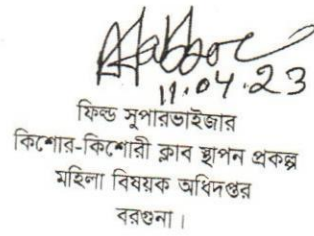 11.04.23
ফিল্ড সুপারভাইজার
কিশোর-কিশোরী ক্লাব স্থাপন প্রকল্প
মহিলা বিষয়ক অধিদপ্তর
বরগুনা।